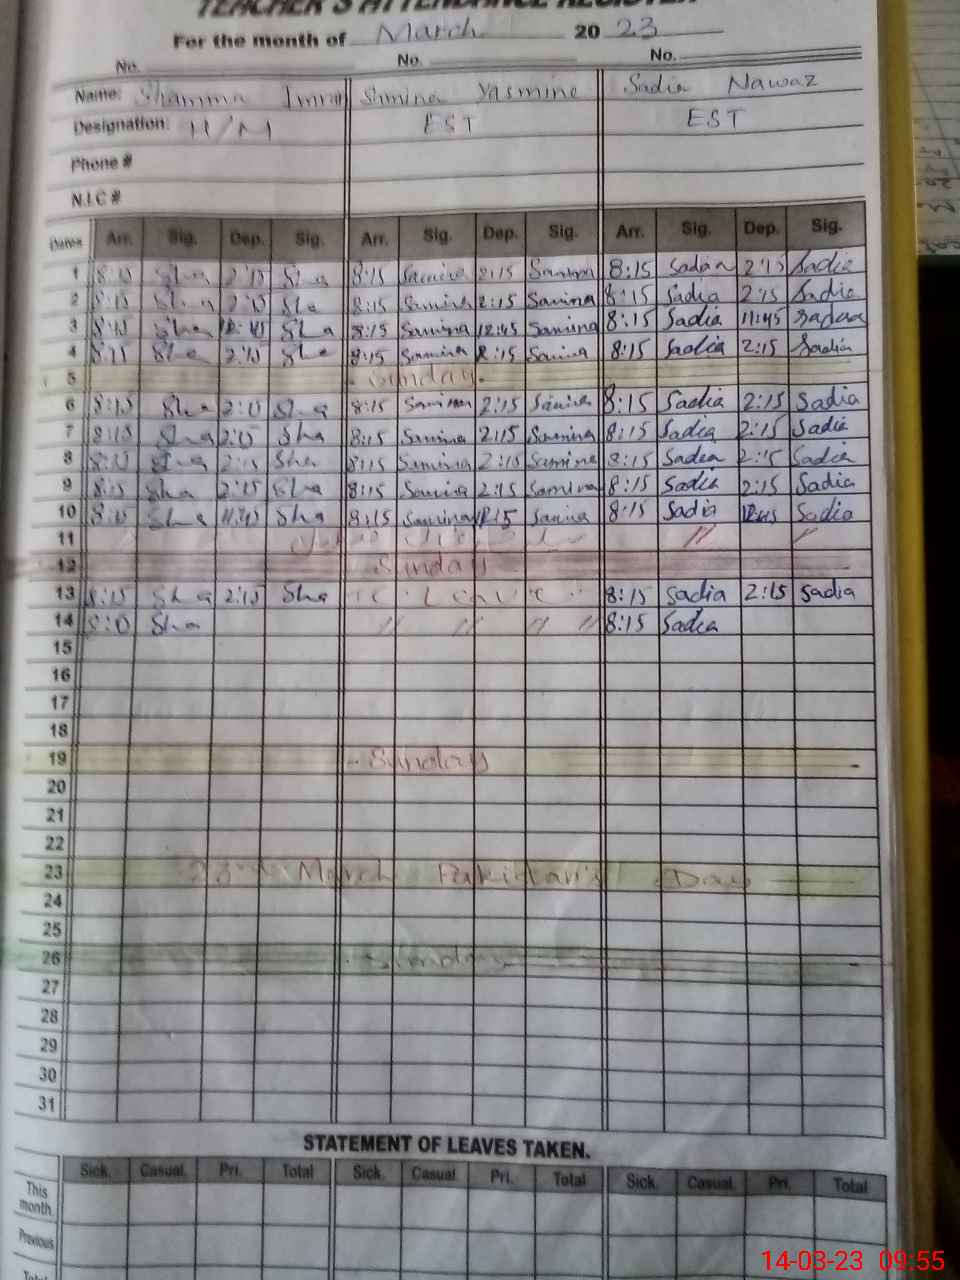 TEACHER'S ATTENDANCE REGISTER
For the month of March 2023
No. No. No.
Name: Shamma Imran Shmina Yasmine Sadia Nawaz
Designation: H/M EST EST
Phone #
N.I.C #
Dates Arr. Sig. Dep. Sig. Arr. Sig. Dep. Sig. Arr. Sig. Dep. Sig.
1 8:15 Sha 2:15 Sha 8:15 Samina 2:15 Samina 8:15 Sadia 2:15 Sadia
2 8:15 Sha 2:15 Sha 8:15 Samina 2:15 Samina 8:15 Sadia 2:15 Sadia
3 8:15 Sha 12:45 Sha 8:15 Samina 12:45 Samina 8:15 Sadia 11:45 Sadia
4 8:15 Sha 2:15 Sha 8:15 Samina 2:15 Samina 8:15 Sadia 2:15 Sadia
5 Sunday
6 8:15 Sha 2:15 Sha 8:15 Samina 2:15 Samina 8:15 Sadia 2:15 Sadia
7 8:15 Sha 2:15 Sha 8:15 Samina 2:15 Samina 8:15 Sadia 2:15 Sadia
8 8:15 Sha 2:15 Sha 8:15 Samina 2:15 Samina 8:15 Sadia 2:15 Sadia
9 8:15 Sha 2:15 Sha 8:15 Samina 2:15 Samina 8:15 Sadia 2:15 Sadia
10 8:15 Sha Sha 8:15 Samina Samina 8:15 Sadia 12:45 Sadia
11 " "
12 Sunday
13 8:15 Sha 2:15 Sha Leave 8:15 Sadia 2:15 Sadia
14 8:15 Sha " " " " 8:15 Sadia
15
16
17
18
19 Sunday
20
21
22
23 23rd March Pakistan's Day
24
25
26 Sunday
27
28
29
30
31
STATEMENT OF LEAVES TAKEN.
Sick. Casual. Pri. Total Sick. Casual. Pri. Total Sick. Casual. Pri. Total
This month.
Previous
Total
14-03-23 09:55